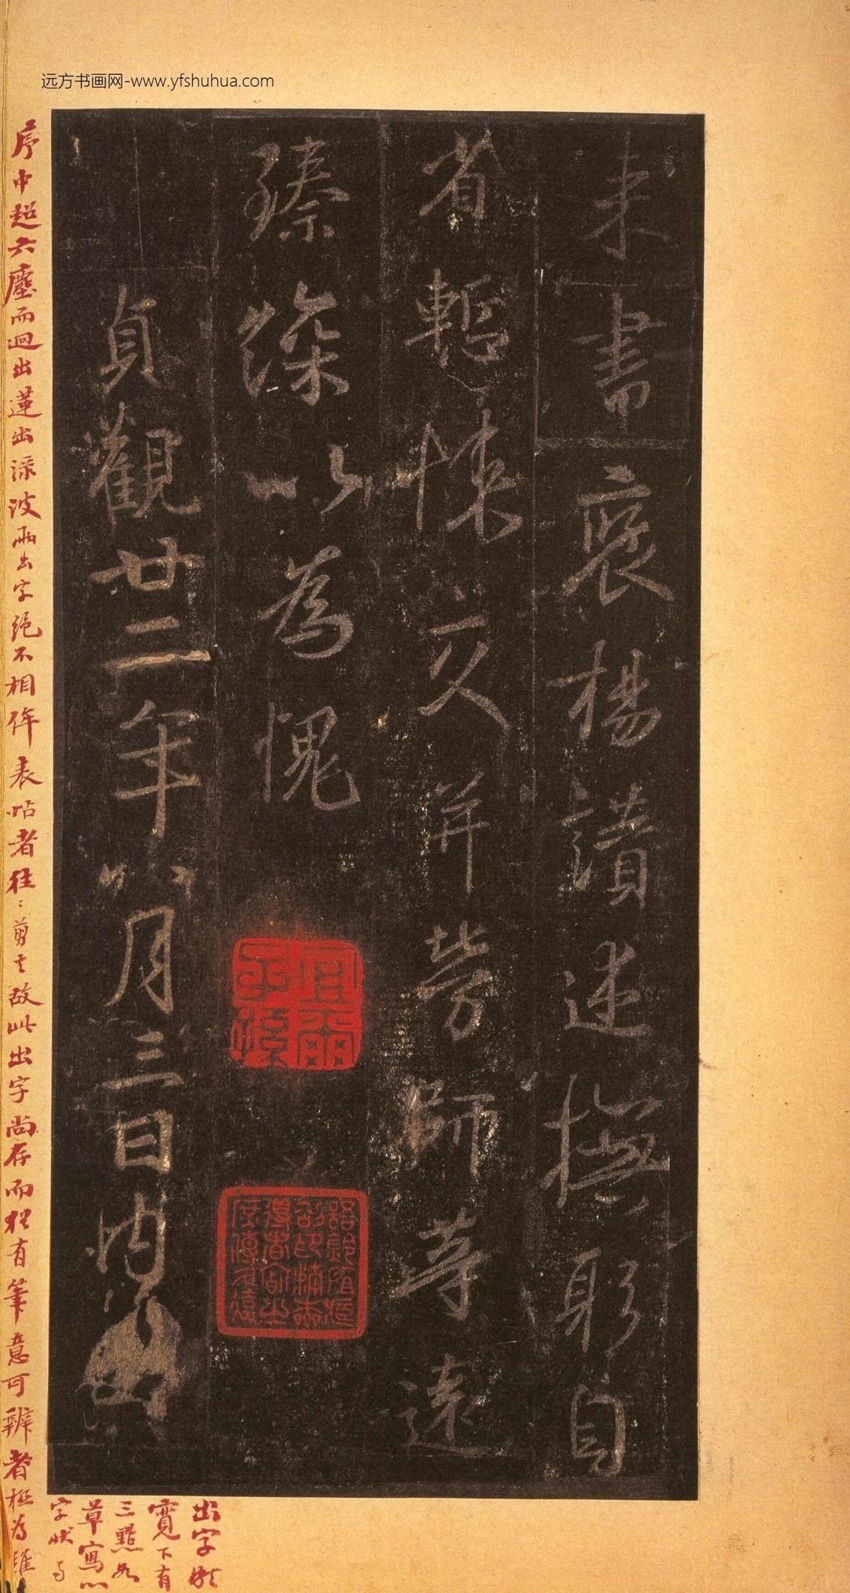 远方书画网-www.yfshuhua.com
来書褒揚讃述撫躬自
省慙悚交并勞師等遠
臻深以為愧
貞觀廿二年八月三日內出
宜爾子孫
序中超六塵而迥出蓮出渌波兩出字絕不相侔表帖者往〻剪去故此出字尚存而猶有筆意可辨者極為難
出字
寬下有
三點
草寫
字狀